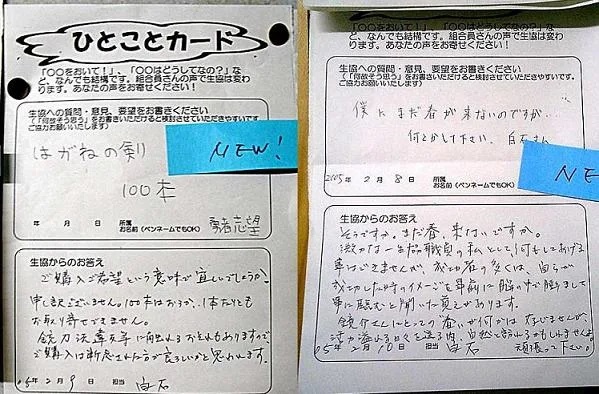 ひとことカード
「〇〇をおいて!」、「〇〇はどうしてなの?」な
ど、なんでも結構です。組合員さんの声で生協は変わ
ります。あなたの声をお寄せください!
生協への質問・意見、要望をお書きください
(「何故そう思う」をお書きいただけると検討させていただきやすいです
ご協力お願いいたします)
はがねの剣
NEW!
100本
年 月 日 所属
お名前(ペンネームでもOK) 勇者志望
生協からのお答え
ご購入ご希望という意味で宜しいでしょうか?
申し訳ございません。100本はおろか、1本たりとも
お取り寄せできません。
銃刀法違反等に触れるおそれもありますので
ご購入は断念された方が良ろしいかと思われます。
05年 2月 9日 担当 白石
「〇〇をおいて!」、「〇〇はどうしてなの?」な
ど、なんでも結構です。組合員さんの声で生協は変わ
ります。あなたの声をお寄せください!
生協への質問・意見、要望をお書きください
(「何故そう思う」をお書きいただけると検討させていただきやすいです
ご協力お願いいたします)
僕にまだ春が来ないのですが…
何とかして下さい、白石さん
NE
2005年 2月 8日 所属
お名前(ペンネームでもOK)
生協からのお答え
そうですか、まだ春、来ないですか。
微力な一生協職員の私として何もしてあげる
事はできませんが、成功者の多くは、自らが
成功した時のイメージを事前に脳の中で膨らまして
事に臨むと聞いた覚えがあります。
鏡介さんにとっての春が何かは存じませんが、
活力溢れる日々を送る内、自然と訪れるかもしれません。
05年 2月 10日 担当 白石 頑張って下さい。